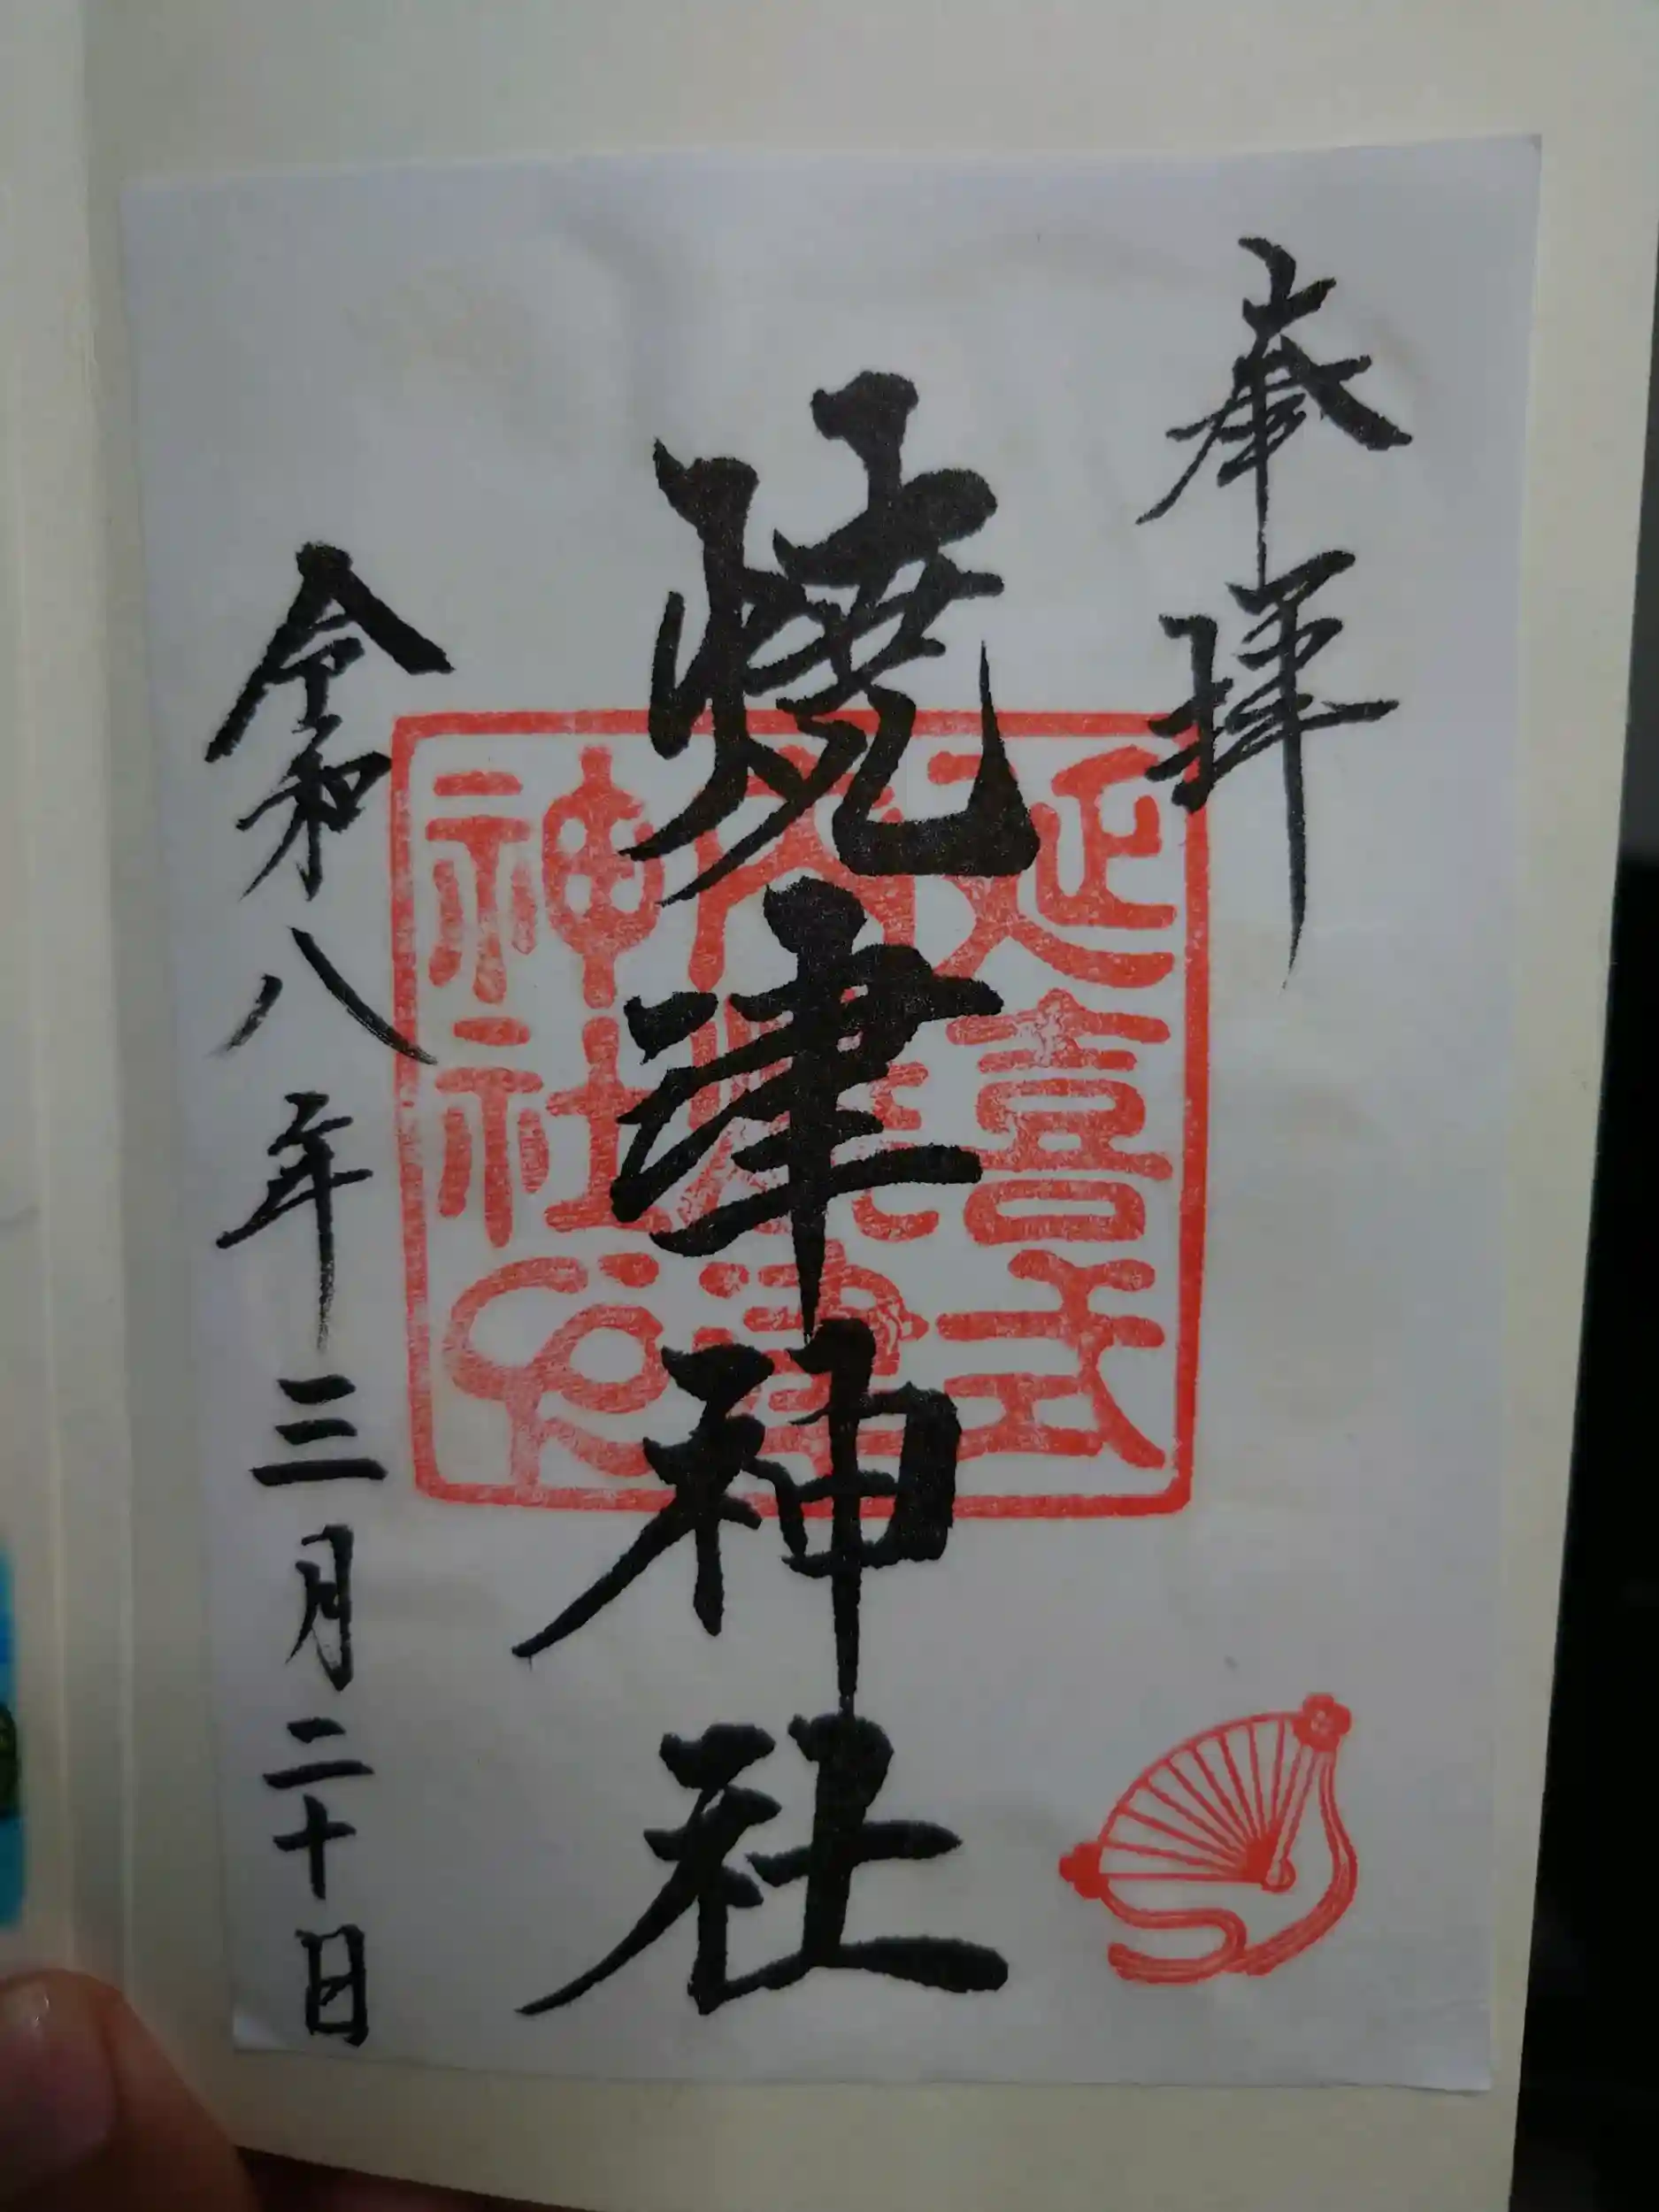 奉拝
延喜式
焼津神社
神社印
令和八年三月二十日